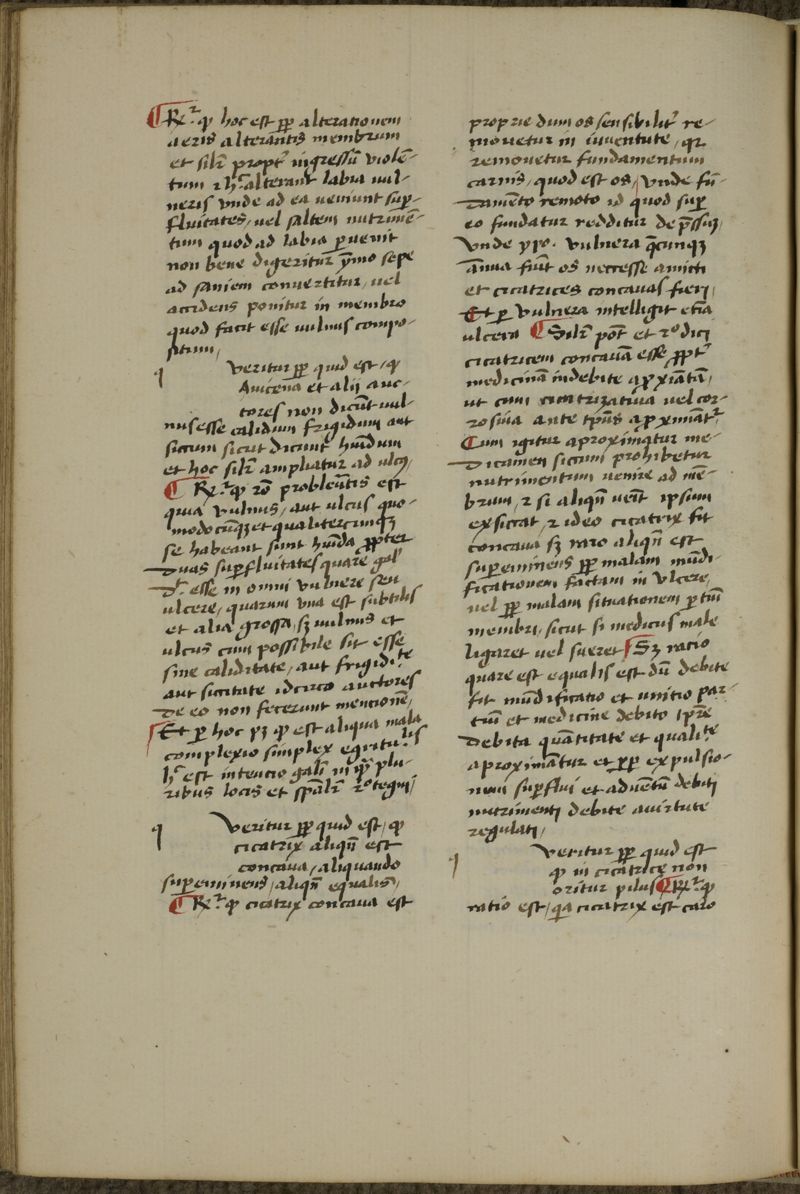 ¶ Rꝫ ꝙ hoc est ꝓpꝑ alterationem
aeris alterantis membrum
et silr̄ propt̄ ingressū violē-
tum ⁊ alterant labia vul-
neris vnde ad ea ueniunt suꝑ-
fluitates / uel saltem nutrimē-
tum quod ad labia ꝑuenit
non bene digeritur ẏmo sepe
ad saniem conuertitur / uel
accidens ponitur in membro
quod facit esse uulnus compo-
situm /
q Veritur ꝓpꝑ quid est / ꝙ
Auicena et alij auc-
tores non dicūt uul-
nus esse calidum frigidum aut
siccum sicut dicunt hūidum
et hoc silr̄ ampliatur ad ulcꝯ
¶ Rꝫ ꝙ rō probleātis est
quia vulnus / aut ulcus quo-
modocūqꝫ et qualitercunqꝫ
se habeant sunt hūida ꝓpter
duas suꝑfluitates quare
dꝫ esse in omni vulnere seu
ulcere / quarum vna est subtilis
et alia grossa / sꝫ uulnus et
ulcus cum possibile sit esse
sine caliditate / aut frigidi.te
aut siccitate idcirco auctores
de eo non fecerunt mentionē /
¶ Et ꝑ hoc pꝫ ꝙ est aliqua mala
complexio simplex egritu.lis
hꝫ est intencio gal̄i in plu-
ribus locis et sp̄al̄r tegni /
q Veritur ꝓpꝑ quid est / ꝙ
cicatrix aliqn̄ est
concaua / aliquando
suꝑeminens / aliqn̄ equalis /
¶ Rꝫ ꝙ cicatrix concaua est
proprie dum os sensibilit̄ re-
mouetur in iuuentute / qꝛ
remouetur fundamentum
carnis / quod est os / vnde fū-
damēto remoto id quod suꝑ
eo fundatur redditur
Vnde ypo. vulnera q̄cunqꝫ
ānua fiūt os necesse amitti
et cicatrices concauas fieri /
Et ꝑ vulnera intelligit etiā
ulcera ¶ Silr̄ pōt et dici
cicatricem concauā esse ꝓpt̄
medicinā indebite aꝓxiātā /
ut cum cicatrizatiua uel cor-
rosiua ante tp̄us aꝓximāt̄
Cum igitur aproximatur me-
dicamen siccum prohibetur
nutrimentum uenire ad mē-
brum / ⁊ si aliqn̄ uēit ipsum
exsiccat / ⁊ ideo cicatrix fit
concaua sꝫ raro aliqn̄ est
suꝑeminens ꝓpꝑ malam mūdi-
ficationem factam in vlcere /
uel ꝓpꝑ malam situationem ꝑtiū
membri / sicut si medicus male
ligaret uel sueret ¶ Sꝫ ratio
quare est equalis est dū debite
fit mūdificatio et unitio par-
tiū et medicine debito tp̄re
debita quātitate et quali.te
aproximātur et ꝓpꝑ expulsio-
nem suꝑflui et aduētū debiti
nutrimenti debite a uirtute
regulati /
q Veritur ꝓpꝑ quid est
ꝙ in cicatrice non
oritur pilus ¶ Rꝫ ꝙ
ratio est / qꝛ cicatrix est caro